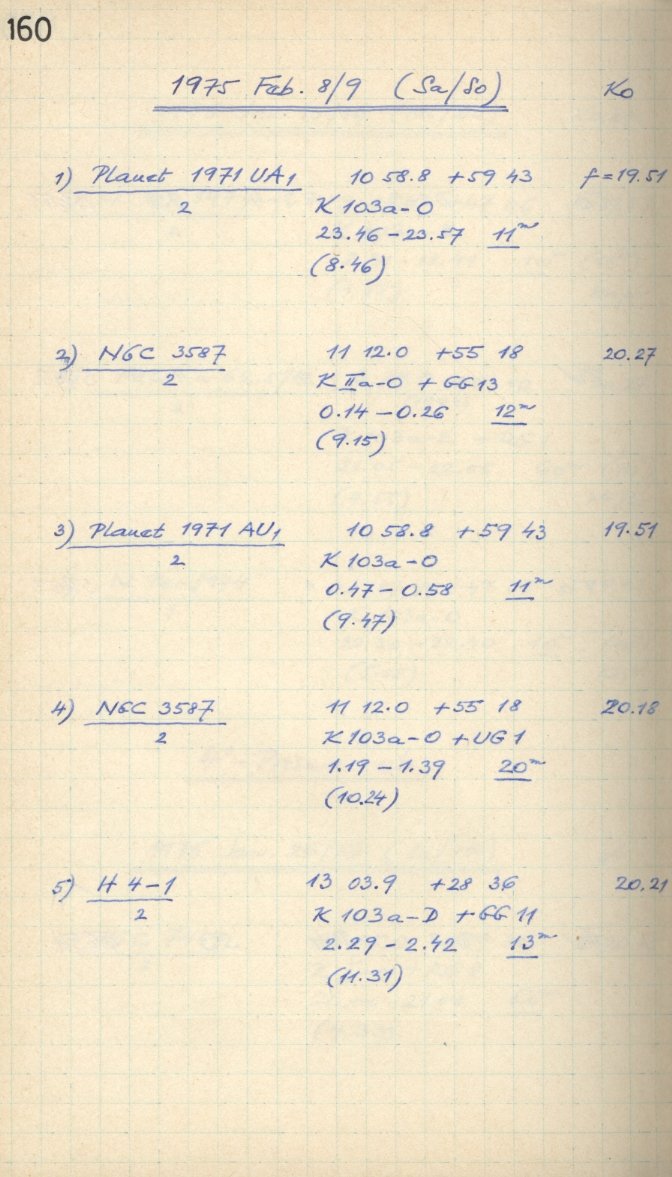 160
1975 Feb. 8/9 (Sa/So) Ko
1) Planet 1971 UA1 10 58.8 +59 43 f=19.51
2 K 103a-O
23.46-23.57 11m
(8.46)
2) NGC 3587 11 12.0 +55 18 20.27
2 K IIa-O + GG13
0.14-0.26 12m
(9.15)
3) Planet 1971 AU1 10 58.8 +59 43 19.51
2 K 103a-O
0.47-0.58 11m
(9.47)
4) NGC 3587 11 12.0 +55 18 20.18
2 K 103a-O + UG1
1.19-1.39 20m
(10.24)
5) H 4-1 13 03.9 +28 36 20.21
2 K 103a-D + GG 11
2.29-2.42 13m
(11.31)